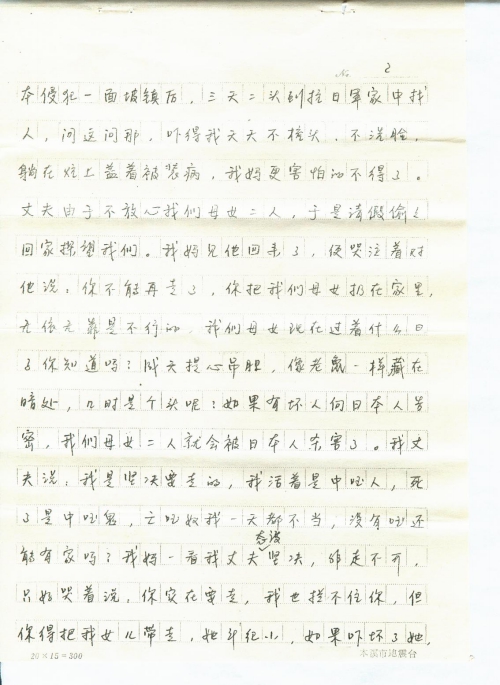 No 2
本侵犯一面坡镇后，三天二头到抗日军家中找
人，问这问那，吓得我天天不梳头，不洗脸，
躺在炕上盖着被装病，我妈更害怕的不得了。
丈夫由于不放心我们母女二人，于是请假偷么
回家探望我们。我妈见他回来了，便哭泣着对
他说：你不能再走了，你把我们母女扔在家里，
无依无靠是不行的，我们母女现在过着什么日
子你知道吗？成天提心吊胆，像老鼠一样藏在
暗处，几时是个头呢？如果有坏人向日本人告
密，我们母女二人就会被日本人杀害了。我丈
夫说：我是坚决要走的，我活着是中国人，死
了是中国鬼，亡国奴我一天都不当，没有国还
能有家吗？我妈一看我丈夫态度坚决，非走不可，
只好哭着说，你实在要走，我也拦不住你，但
你得把我女儿带走，她年纪小，如果吓坏了她，
20×15=300 本溪市地震台